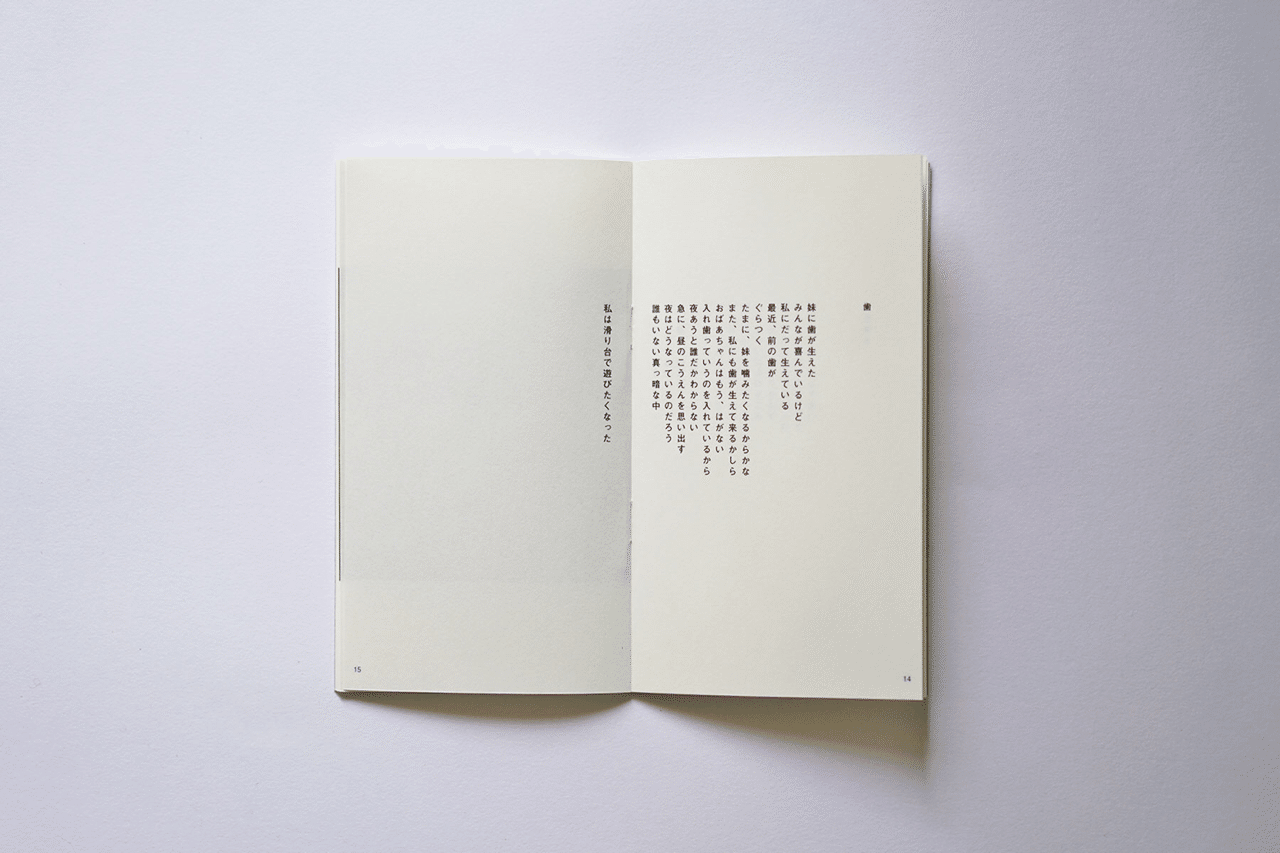 歯
妹に歯が生えた
みんなが喜んでいるけど
私にだって生えている
最近、前の歯が
ぐらつく
たまに、妹を噛みたくなるからかな
また、私にも歯が生えて来るかしら
おばあちゃんはもう、はがない
入れ歯っていうのを入れているから
夜あうと誰だかわからない
急に、昼のこうえんを思い出す
夜はどうなっているのだろう
誰もいない真っ暗な中
14
私は滑り台で遊びたくなった
15